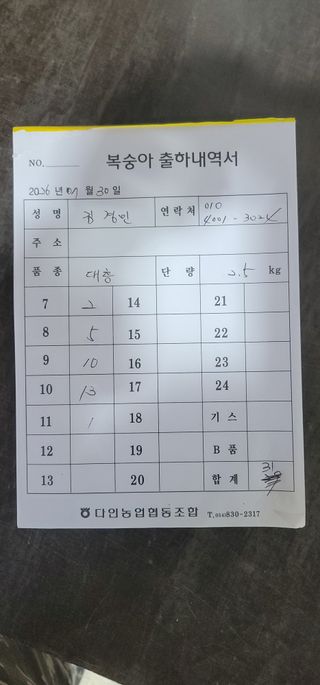 NO.
복숭아 출하내역서
2026 년 07 월 30 일
성 명 김경민 연락처 010 4001-3024
주 소
품 종 대홍 단 량 2.5 kg
7 2 14 21
8 5 15 22
9 10 16 23
10 13 17 24
11 1 18 기 스
12 19 B 품
13 20 합 계 31
다인농업협동조합 T.054)830-2317